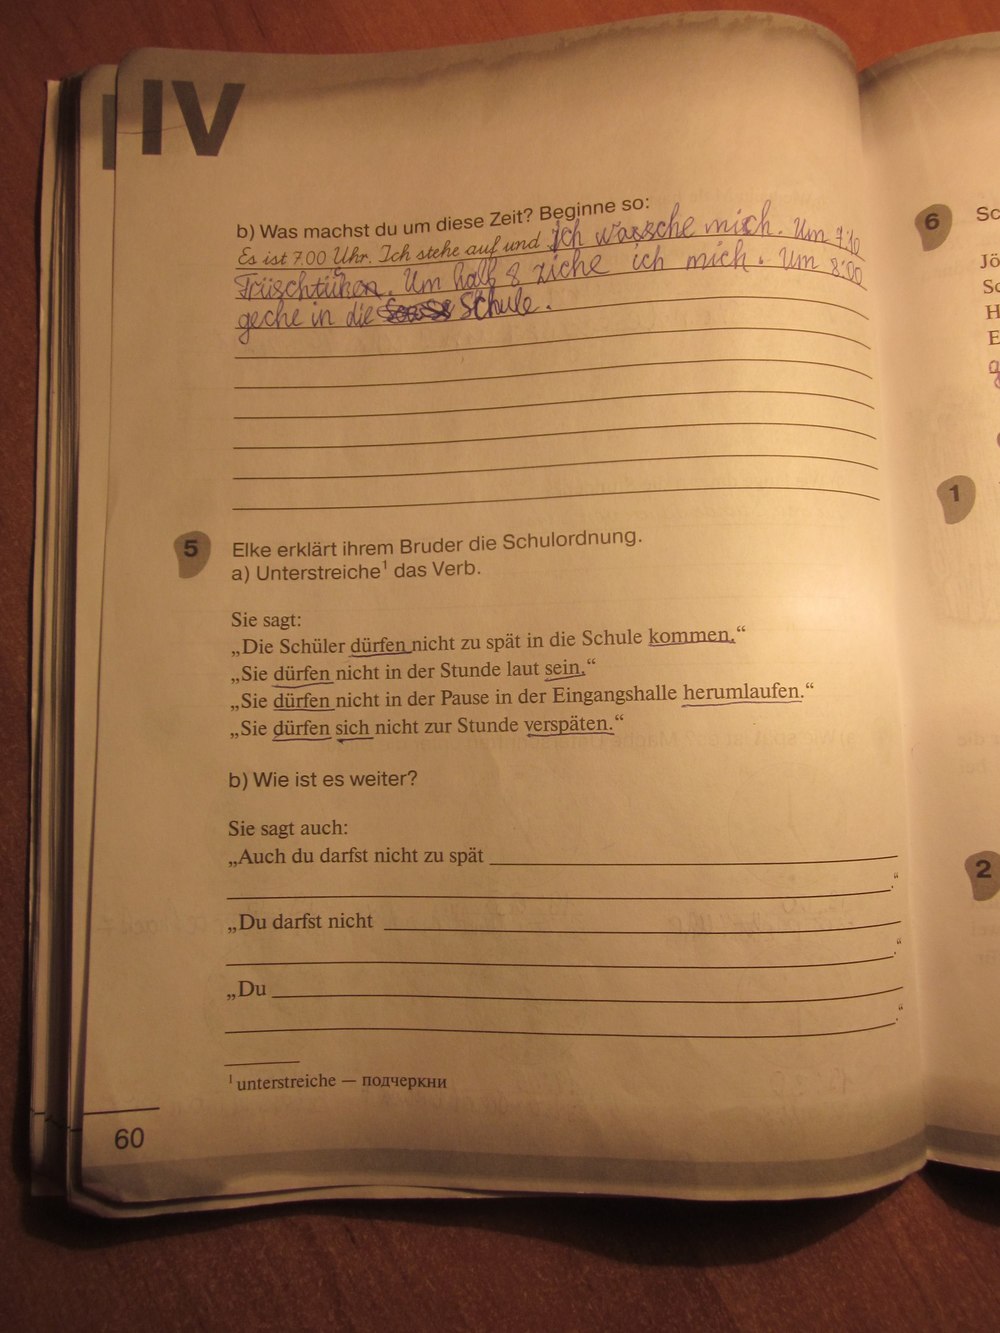 IV
b) Was machst du um diese Zeit? Beginne so:
Es ist 7.00 Uhr. Ich stehe auf und Ich wassche mich. Um 7:10
Früschtüken. Um halb 8 ziche ich mich. Um 8:00
geche in die Schule.
5
Elke erklärt ihrem Bruder die Schulordnung.
a) Unterstreiche¹ das Verb.
Sie sagt:
„Die Schüler dürfen nicht zu spät in die Schule kommen.“
„Sie dürfen nicht in der Stunde laut sein.“
„Sie dürfen nicht in der Pause in der Eingangshalle herumlaufen.“
„Sie dürfen sich nicht zur Stunde verspäten.“
b) Wie ist es weiter?
Sie sagt auch:
„Auch du darfst nicht zu spät
.“
„Du darfst nicht
.“
„Du
.“
¹ unterstreiche — подчеркни
60
6
Sc
Jö
Sc
H
E
1
2